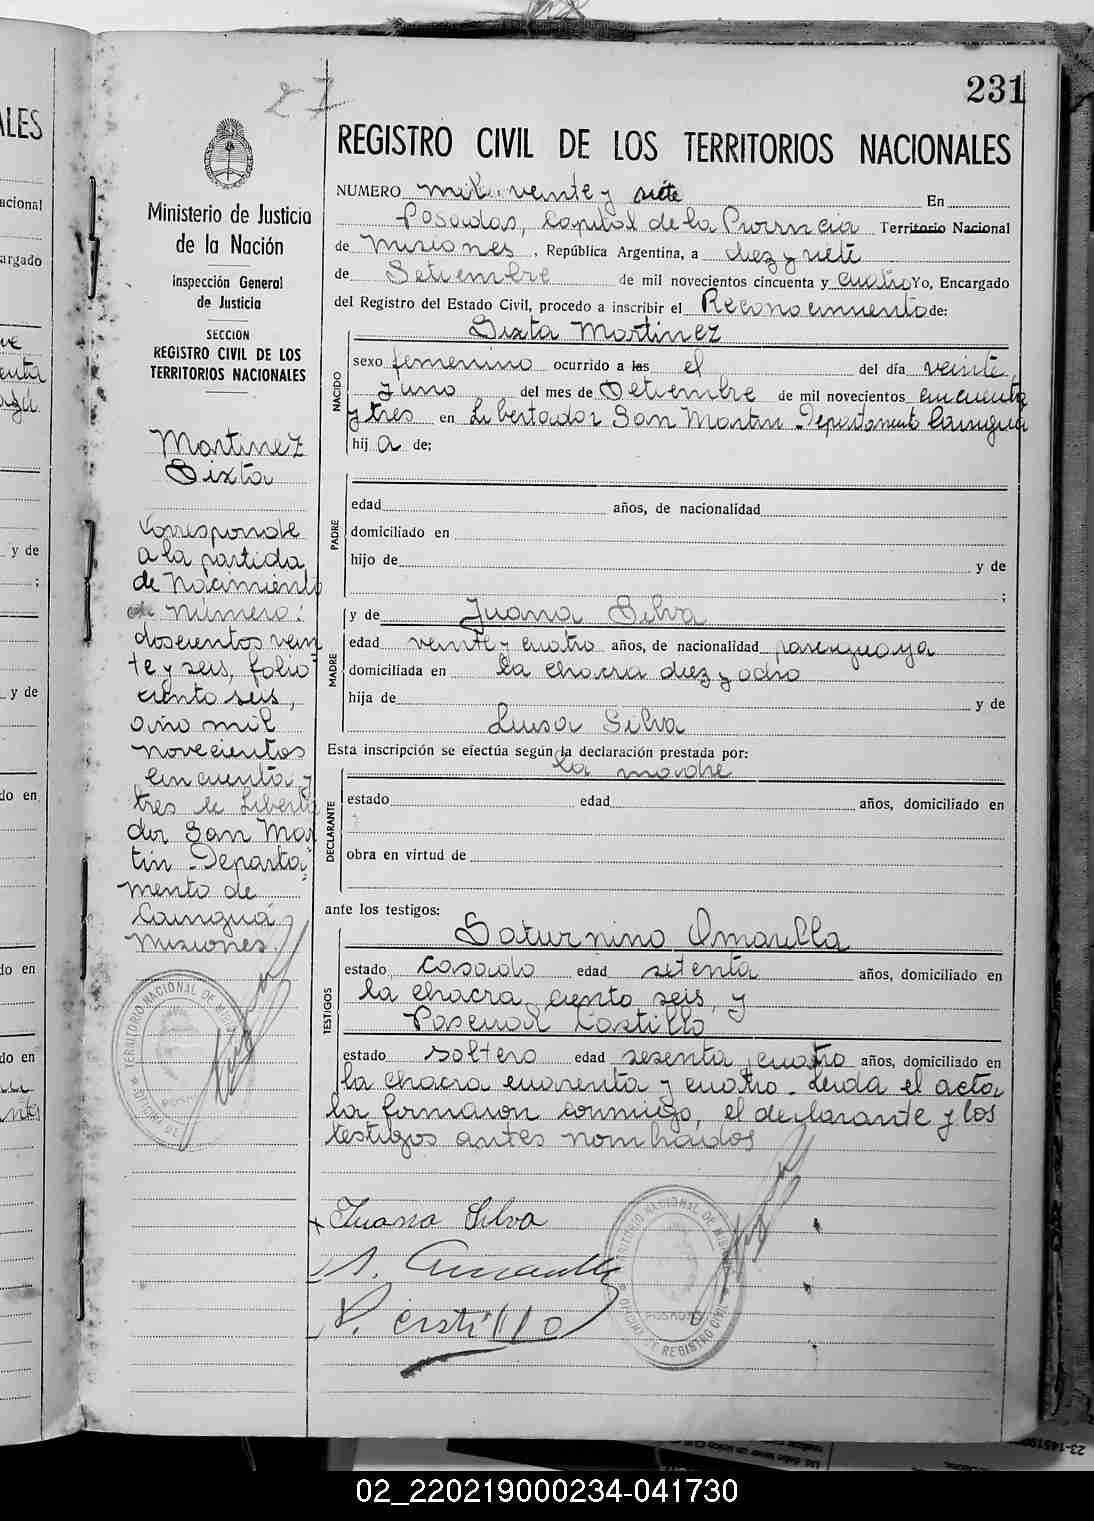 231
27
REGISTRO CIVIL DE LOS TERRITORIOS NACIONALES
Ministerio de Justicia
de la Nación
Inspección General
de Justicia
SECCION
REGISTRO CIVIL DE LOS
TERRITORIOS NACIONALES
Martinez
Sixta
Corresponde
a la partida
de Nacimiento
de Número:
doscientos vein
te y seis, folio
ciento seis,
año mil
novecientos
cincuenta y
tres de Liberta
dor San Mar
tin Departa
mento de
Cainguá
Misiones.
NUMERO mil veinte y siete En
Posadas, Capital de la Provincia Territorio Nacional
de Misiones, República Argentina, a diez y siete
de Setiembre de mil novecientos cincuenta y cuatro Yo, Encargado
del Registro del Estado Civil, procedo a inscribir el Reconocimiento de:
NACIDO
Sixta Martinez
sexo femenino ocurrido a las el del día veinte,
y uno del mes de Setiembre de mil novecientos cincuenta
y tres en Libertador San Martin Departamento Cainguá
hij a de;
PADRE
edad años, de nacionalidad
domiciliado en
hijo de y de
;
MADRE
y de Juana Silva
edad veinte y cuatro años, de nacionalidad paraguaya
domiciliada en la chacra diez y ocho
hija de y de
Luisa Silva
Esta inscripción se efectúa según la declaración prestada por:
la madre
DECLARANTE
estado edad años, domiciliado en
obra en virtud de
ante los testigos:
TESTIGOS
Saturnino Amarilla
estado casado edad setenta años, domiciliado en
la chacra ciento seis, y
Pascual Castillo
estado soltero edad sesenta cuatro años, domiciliado en
la chacra cuarenta y cuatro. Leida el acta
la firmaron conmigo, el declarante y los
testigos antes nombrados
Juana Silva
S. Amarilla
P. Castillo
TERRITORIO NACIONAL DE MISIONES
POSADAS
OFICINA DE REGISTRO CIVIL
02_220219000234-041730